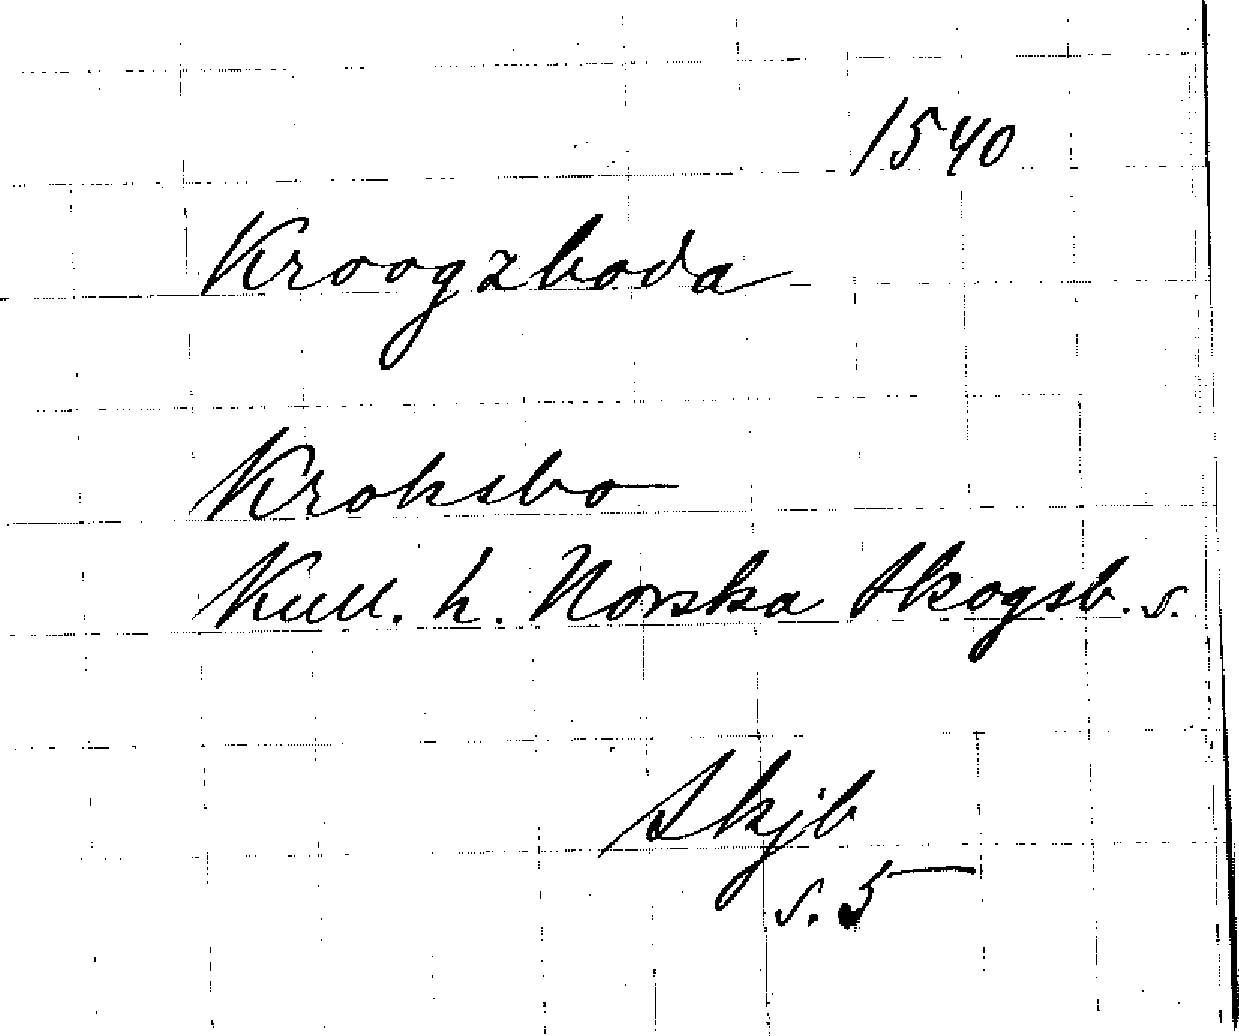 1540
Kroogzboda
Kroksbo
Kull. h. Norska Skogsb. s.
Skjb
s. 5